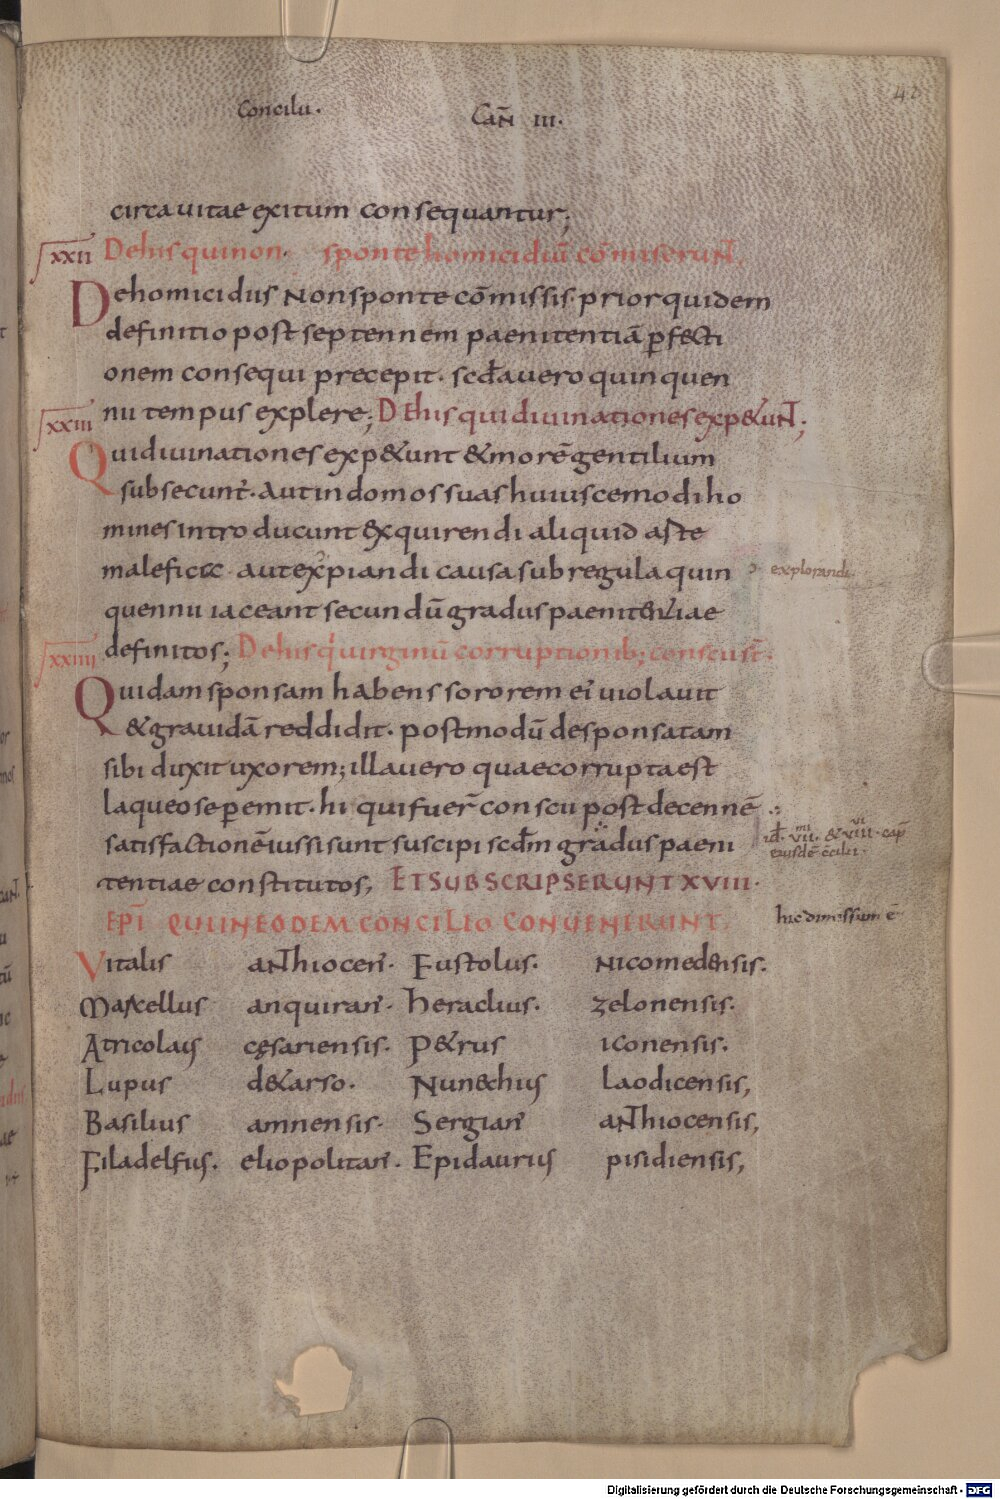 Concilii. Cañ III.
42
circa uitae exitum consequantur;
XXII De his qui non sponte homicidiū cōmiserunt.
De homicidiis non sponte cōmissis. prior quidem
definitio post septennem paenitentiā ꝑfecti
onem consequi precepit. scđa uero quinquen
nii tempus explere; De his qui diuinationes exp&unt;
XXIII
Qui diuinationes exp&unt & morē gentilium
subsecunt̄. aut in domos suas huiuscemodi ho
mines introducunt exquirendi aliquid arte
malefica aut expiandi causa sub regula quin
explorandi
quennii iaceant secundū gradus paenitentiae
definitos; De his qui uirginū corruptionib; conscii st̄.
XXIIII
Quidam sponsam habens sororem ei' uiolauit
& grauidā reddidit. postmodū desponsatam
sibi duxit uxorem; illa uero quae corrupta est
laqueo se ꝑemit. hi qui fuer̄ conscii post decennē
satisfactionē iussi sunt suscipi scđm gradus paeni
tentiae constitutos, ET SUBSCRIPSERUNT XVIII.
EPĪ QUI IN EODEM CONCILIO CONUENERUNT.
hic dimissum ē
Vitalis anthiocen̄. Fustolus. nicomedensis.
Marcellus anquiran̄. heraclius. zelonensis.
Atricolaus cęsariensis. P&rus iconensis.
Lupus de tarso. Nunechius laodicensis,
Basilius amnensis. Sergian̄ anthiocensis,
Filadelfus. eliopolitan̄. Epidaurius pisidiensis,
Digitalisierung gefördert durch die Deutsche Forschungsgemeinschaft - DFG